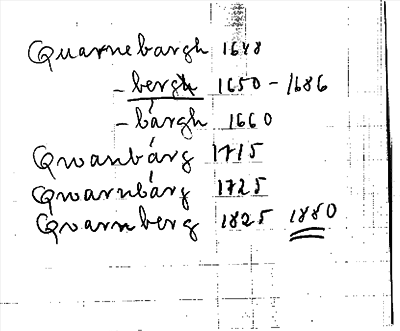 Quarnebargh 1648
- bergh 1650 - 1686
- bárgh 1660
Qwanbárg 1715
Qwarnbárg 1725
Qvarnberg 1825 1880